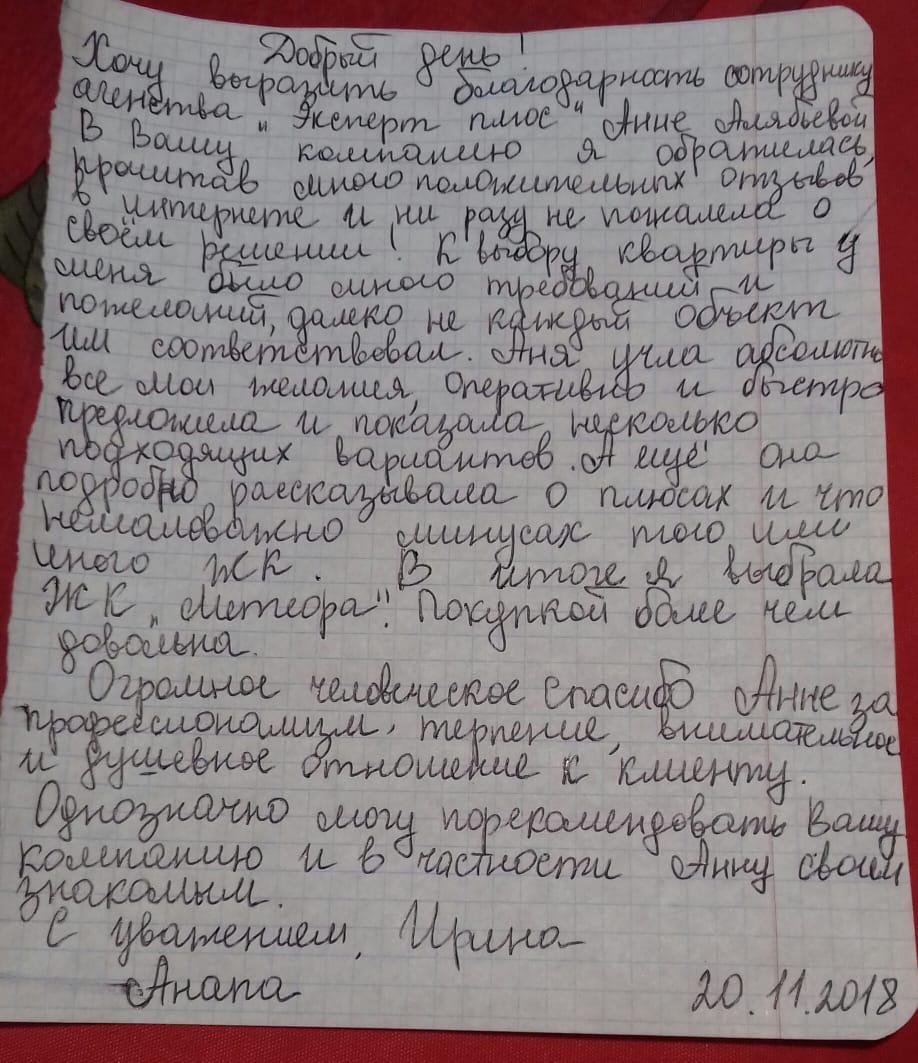 Добрый день!
Хочу выразить благодарность сотруднику
агенства „Эксперт плюс" Анне Алябьевой
В Вашу компанию я обратилась,
прочитав много положительных отзывов
в интернете и ни разу не пожалела о
своём решении! К выбору квартиры у
меня было много требований и
пожеланий, далеко не каждый объект
им соответствовал. Аня учла абсолютно
все мои желания, оперативно и быстро
предложила и показала несколько
подходящих вариантов. А ещё она
подробно рассказывала о плюсах и что
немаловажно минусах того или
иного ЖК. В итоге я выбрала
ЖК „Метеора". Покупкой более чем
довольна.
Огромное человеческое спасибо Анне за
профессионализм, терпение, внимательное
и душевное отношение к клиенту.
Однозначно могу порекомендовать Вашу
компанию и в частности Анну своим
знакомым.
С уважением, Ирина
Анапа 20.11.2018